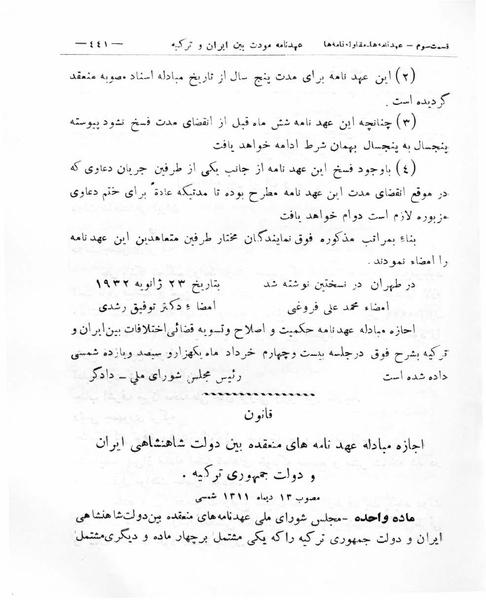 قسمت سوم – عهدنامه‌ها، مقاوله‌نامه‌ها عهدنامه مودت بین ایران و ترکیه —۴۴۱—
(۲) این عهد نامه برای مدت پنج سال از تاریخ مبادله اسناد مصوبه منعقد
گردیده است .
(۳) چنانچه این عهد نامه شش ماه قبل از انقضای مدت فسخ نشود پیوسته
پنجسال به پنجسال بهمان شرط ادامه خواهد یافت
(٤) باوجود فسخ این عهد نامه از جانب یکی از طرفین جریان دعاوی که
در موقع انقضای مدت این عهد نامه مطرح بوده تا مدتیکه عادةً برای ختم دعاوی
مزبوره لازم است دوام خواهد یافت
بناءً بمراتب مذکوره فوق نمایندگان مختار طرفین متعاهدین این عهدنامه
را امضاء نمودند .
در طهران در نسختین نوشته شد بتاریخ ۲۳ ژانویه ۱۹۳۲
امضاء محمد علی فروغی امضاء دکتر توفیق رشدی
اجازه مبادله عهدنامه حکمیت و اصلاح و تسویه قضائی اختلافات بین ایران و
ترکیه بشرح فوق در جلسه بیست و چهارم خرداد ماه یکهزار و سیصد و یازده شمسی
داده شده است رئیس مجلس شورای ملی – دادگر
قانون
اجازه مبادله عهد نامه های منعقده بین دولت شاهنشاهی ایران
و دولت جمهوری ترکیه .
مصوب ۱۳ دیماه ۱۳۱۱ شمسی
ماده واحده –مجلس شورای ملی عهدنامه‌های منعقده بین دولت شاهنشاهی
ایران و دولت جمهوری ترکیه را که یکی مشتمل بر چهار ماده و دیگری مشتمل